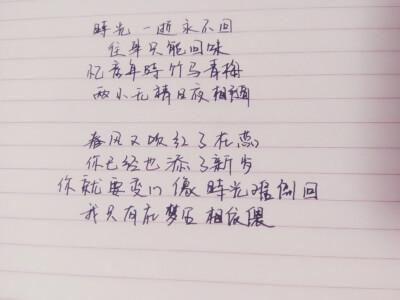 時光一逝永不回
往事只能回味
忆童年時竹马青梅
两小无猜日夜相随
春风又吹红了花蕊
你已经也添了新岁
你就要变心像時光难倒回
我只有在梦里相依偎